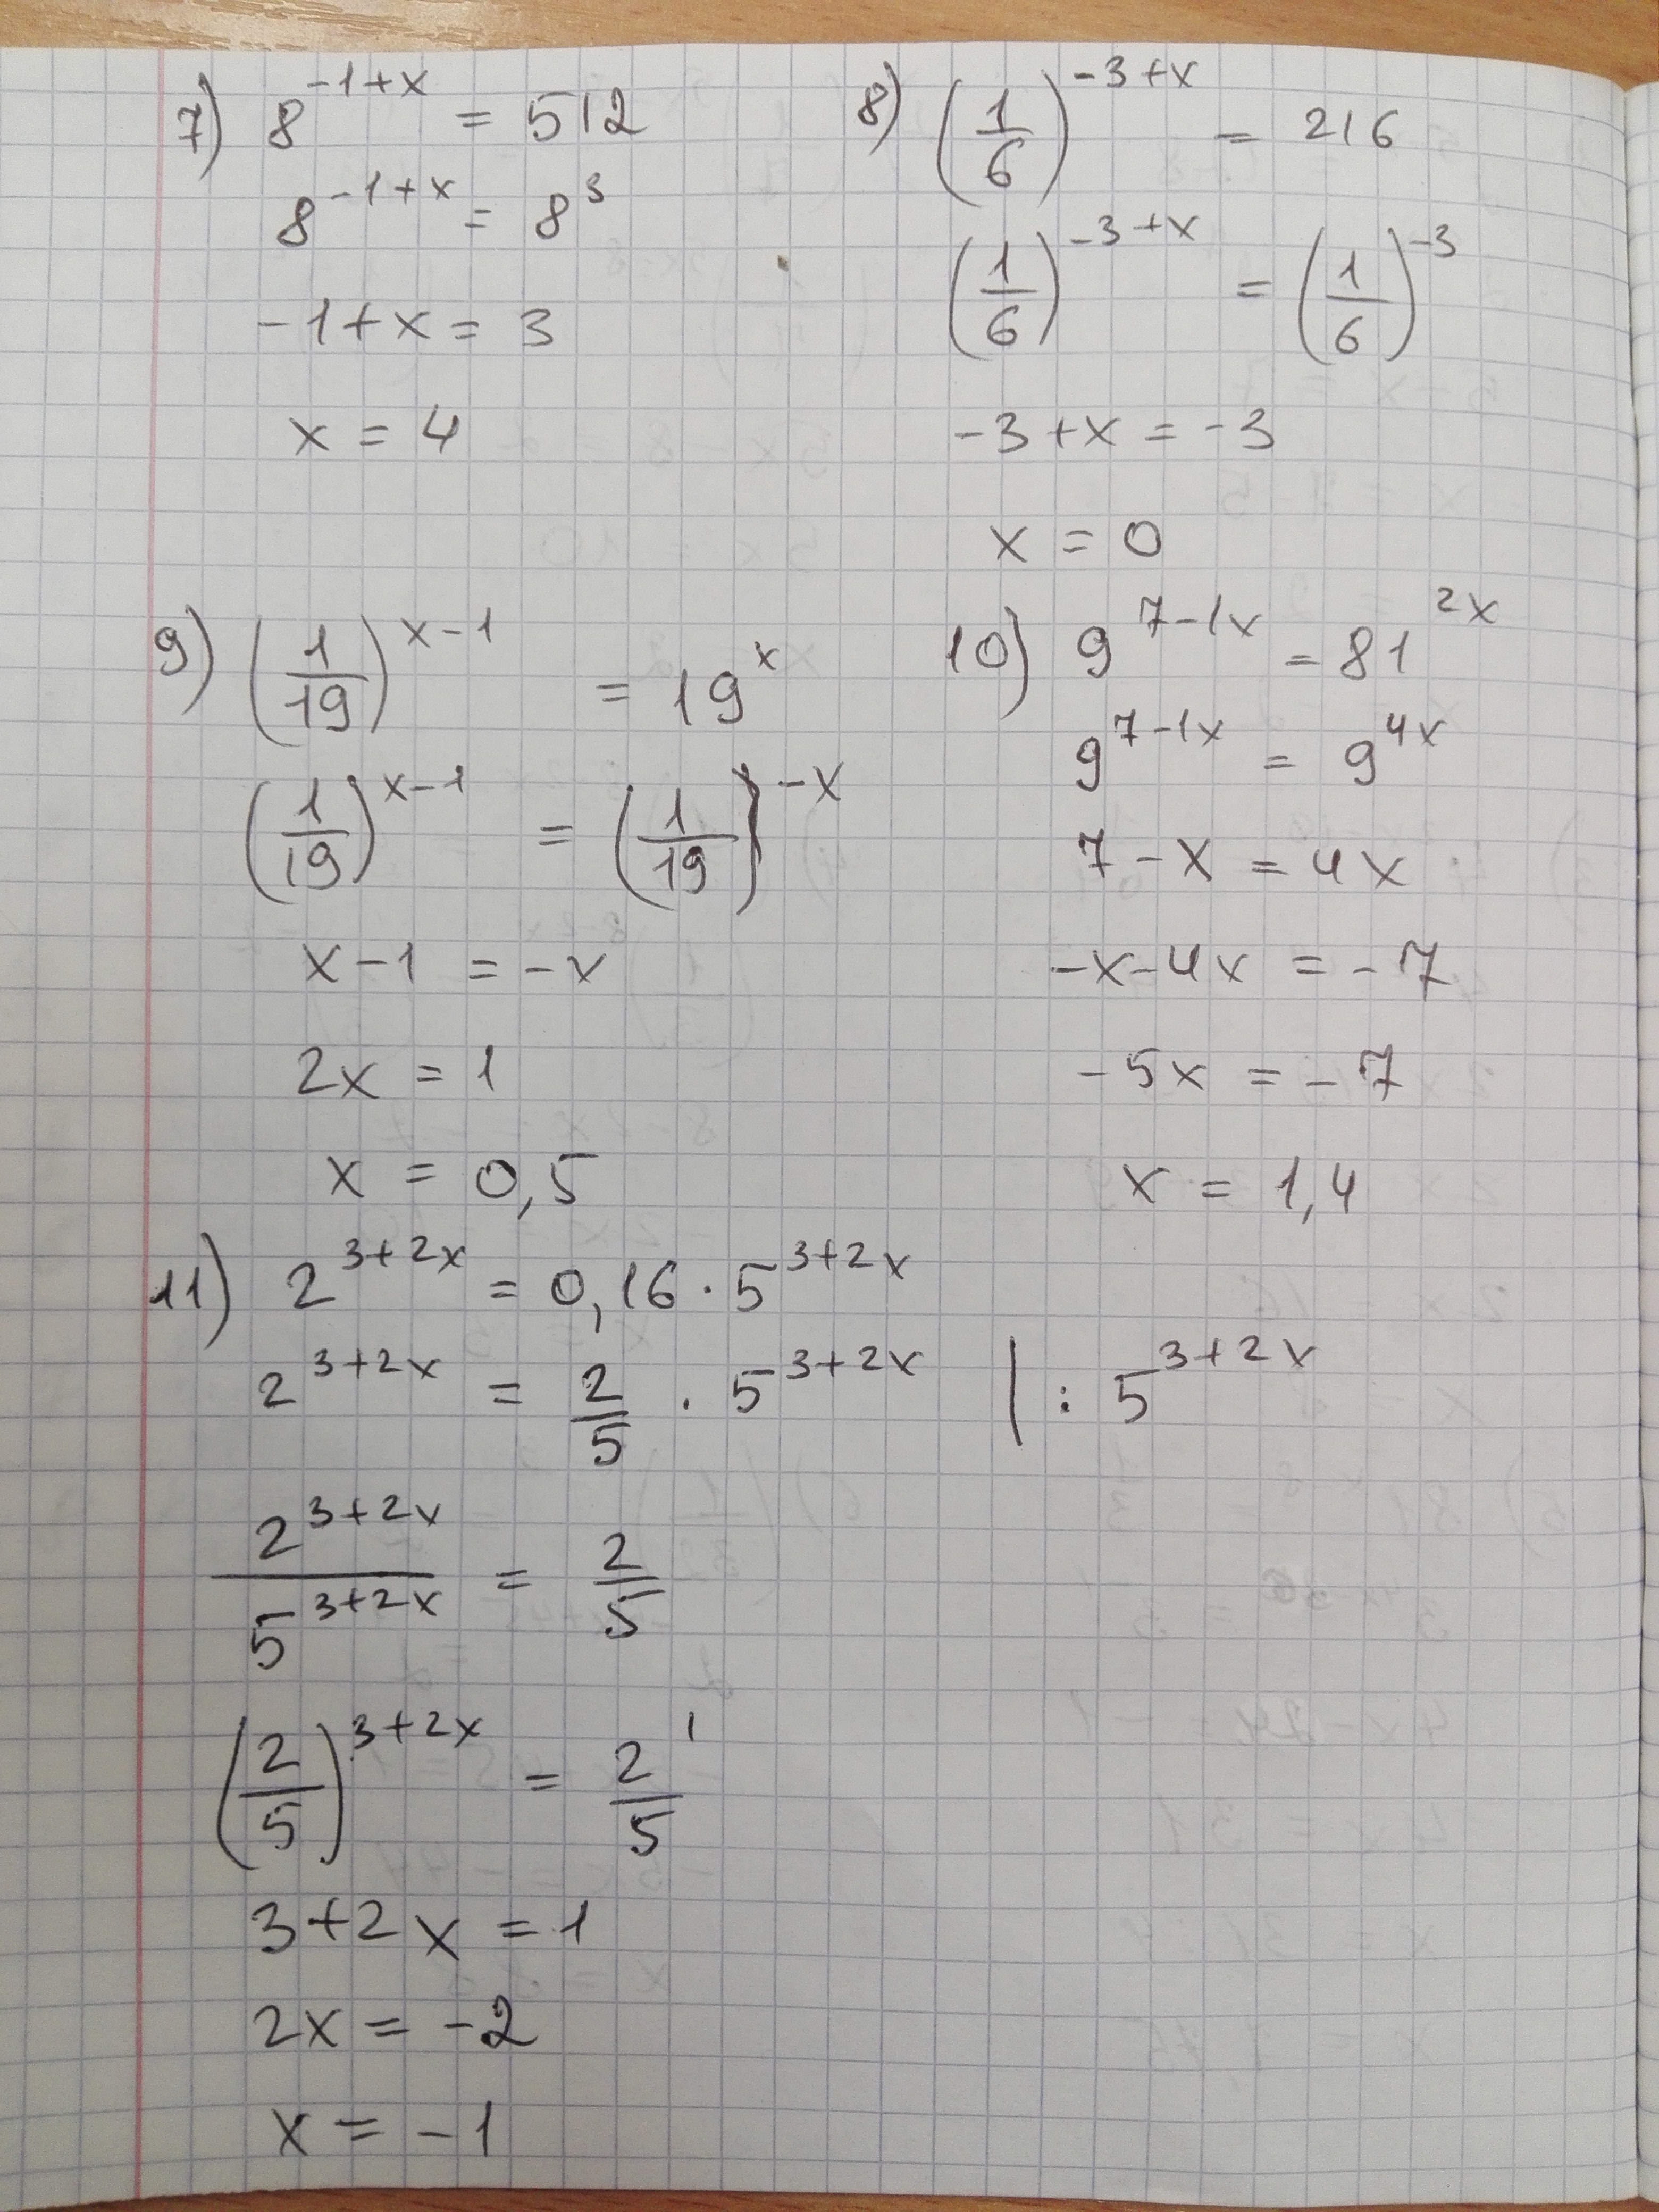 7) 8^{-1+x} = 512
8^{-1+x} = 8^3
-1+x = 3
x = 4
8) (1/6)^{-3+x} = 216
(1/6)^{-3+x} = (1/6)^{-3}
-3+x = -3
x = 0
9) (1/19)^{x-1} = 19^x
(1/19)^{x-1} = (1/19)^{-x}
x-1 = -x
2x = 1
x = 0,5
10) 9^{7-1x} = 81^{2x}
9^{7-1x} = 9^{4x}
7-x = 4x
-x-4x = -7
-5x = -7
x = 1,4
11) 2^{3+2x} = 0,16 · 5^{3+2x}
2^{3+2x} = 2/5 · 5^{3+2x} | : 5^{3+2x}
2^{3+2x}/5^{3+2x} = 2/5
(2/5)^{3+2x} = 2/5^1
3+2x = 1
2x = -2
x = -1